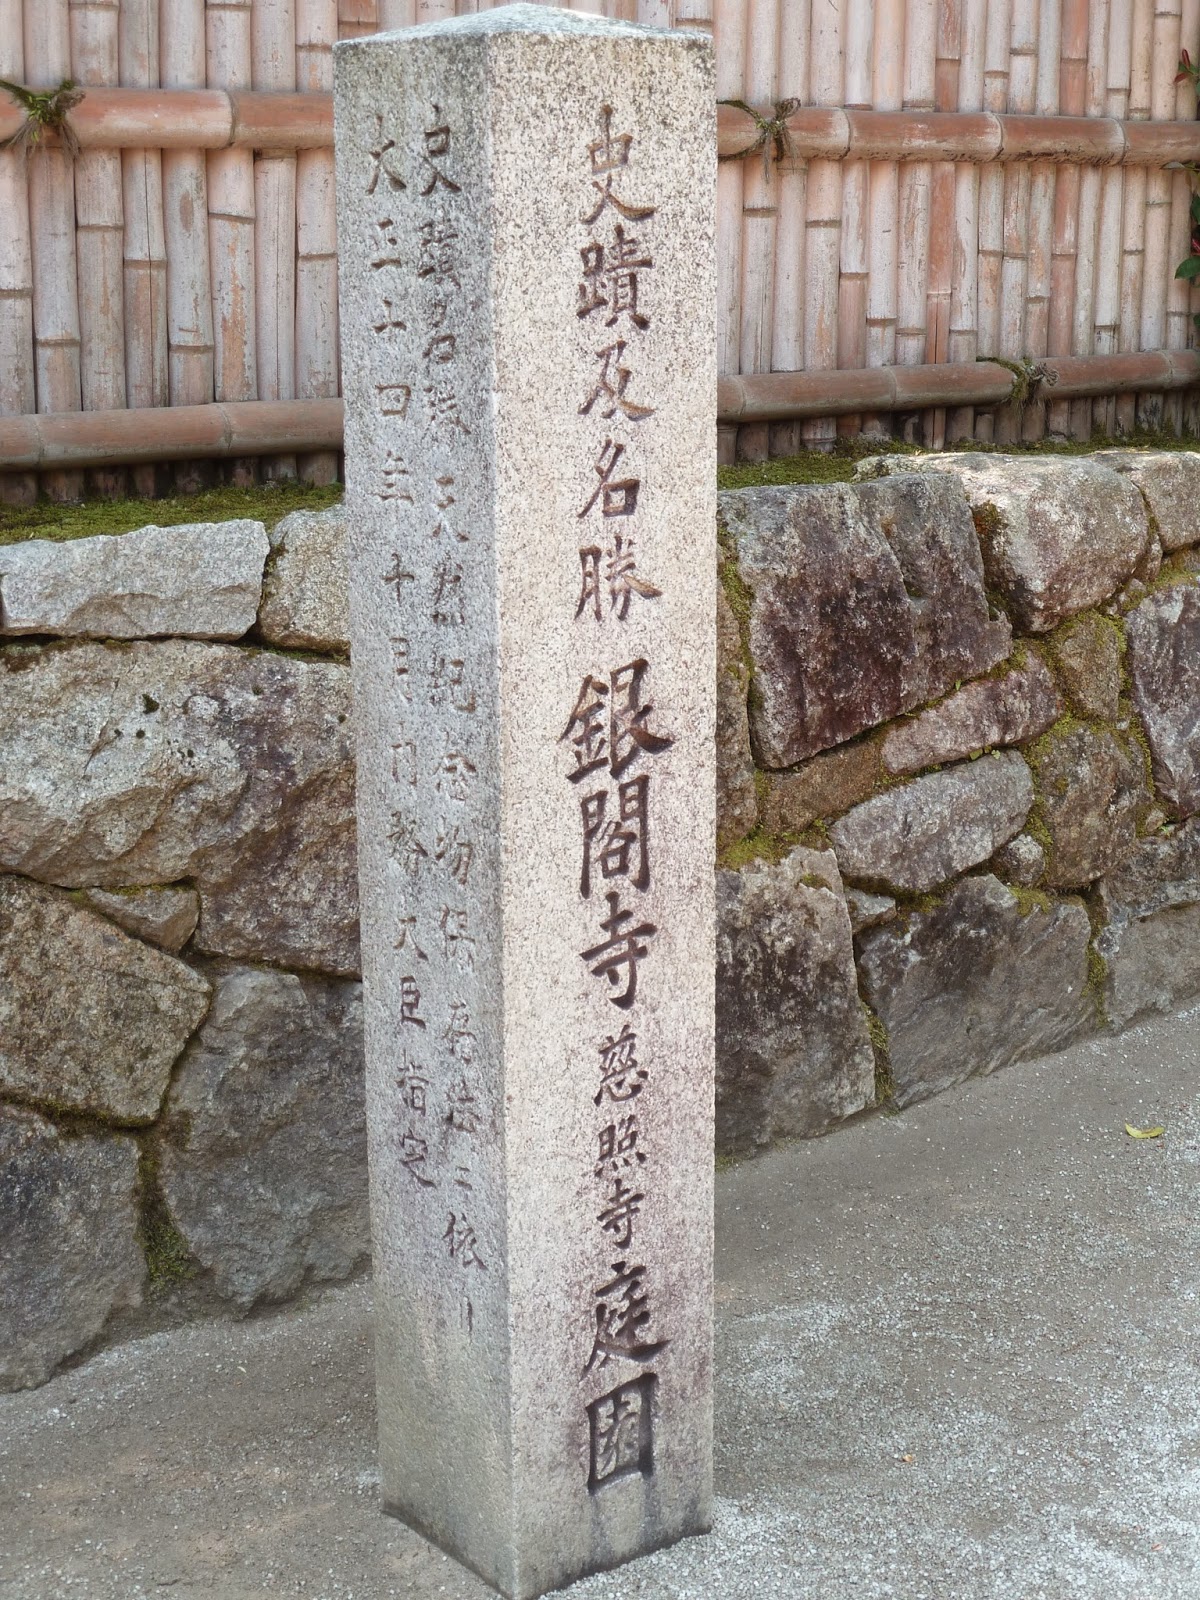 史蹟及名勝 銀閣寺 慈照寺 庭園
史蹟名勝天然紀念物保存法ニ依リ
大正十四年十月内務大臣指定